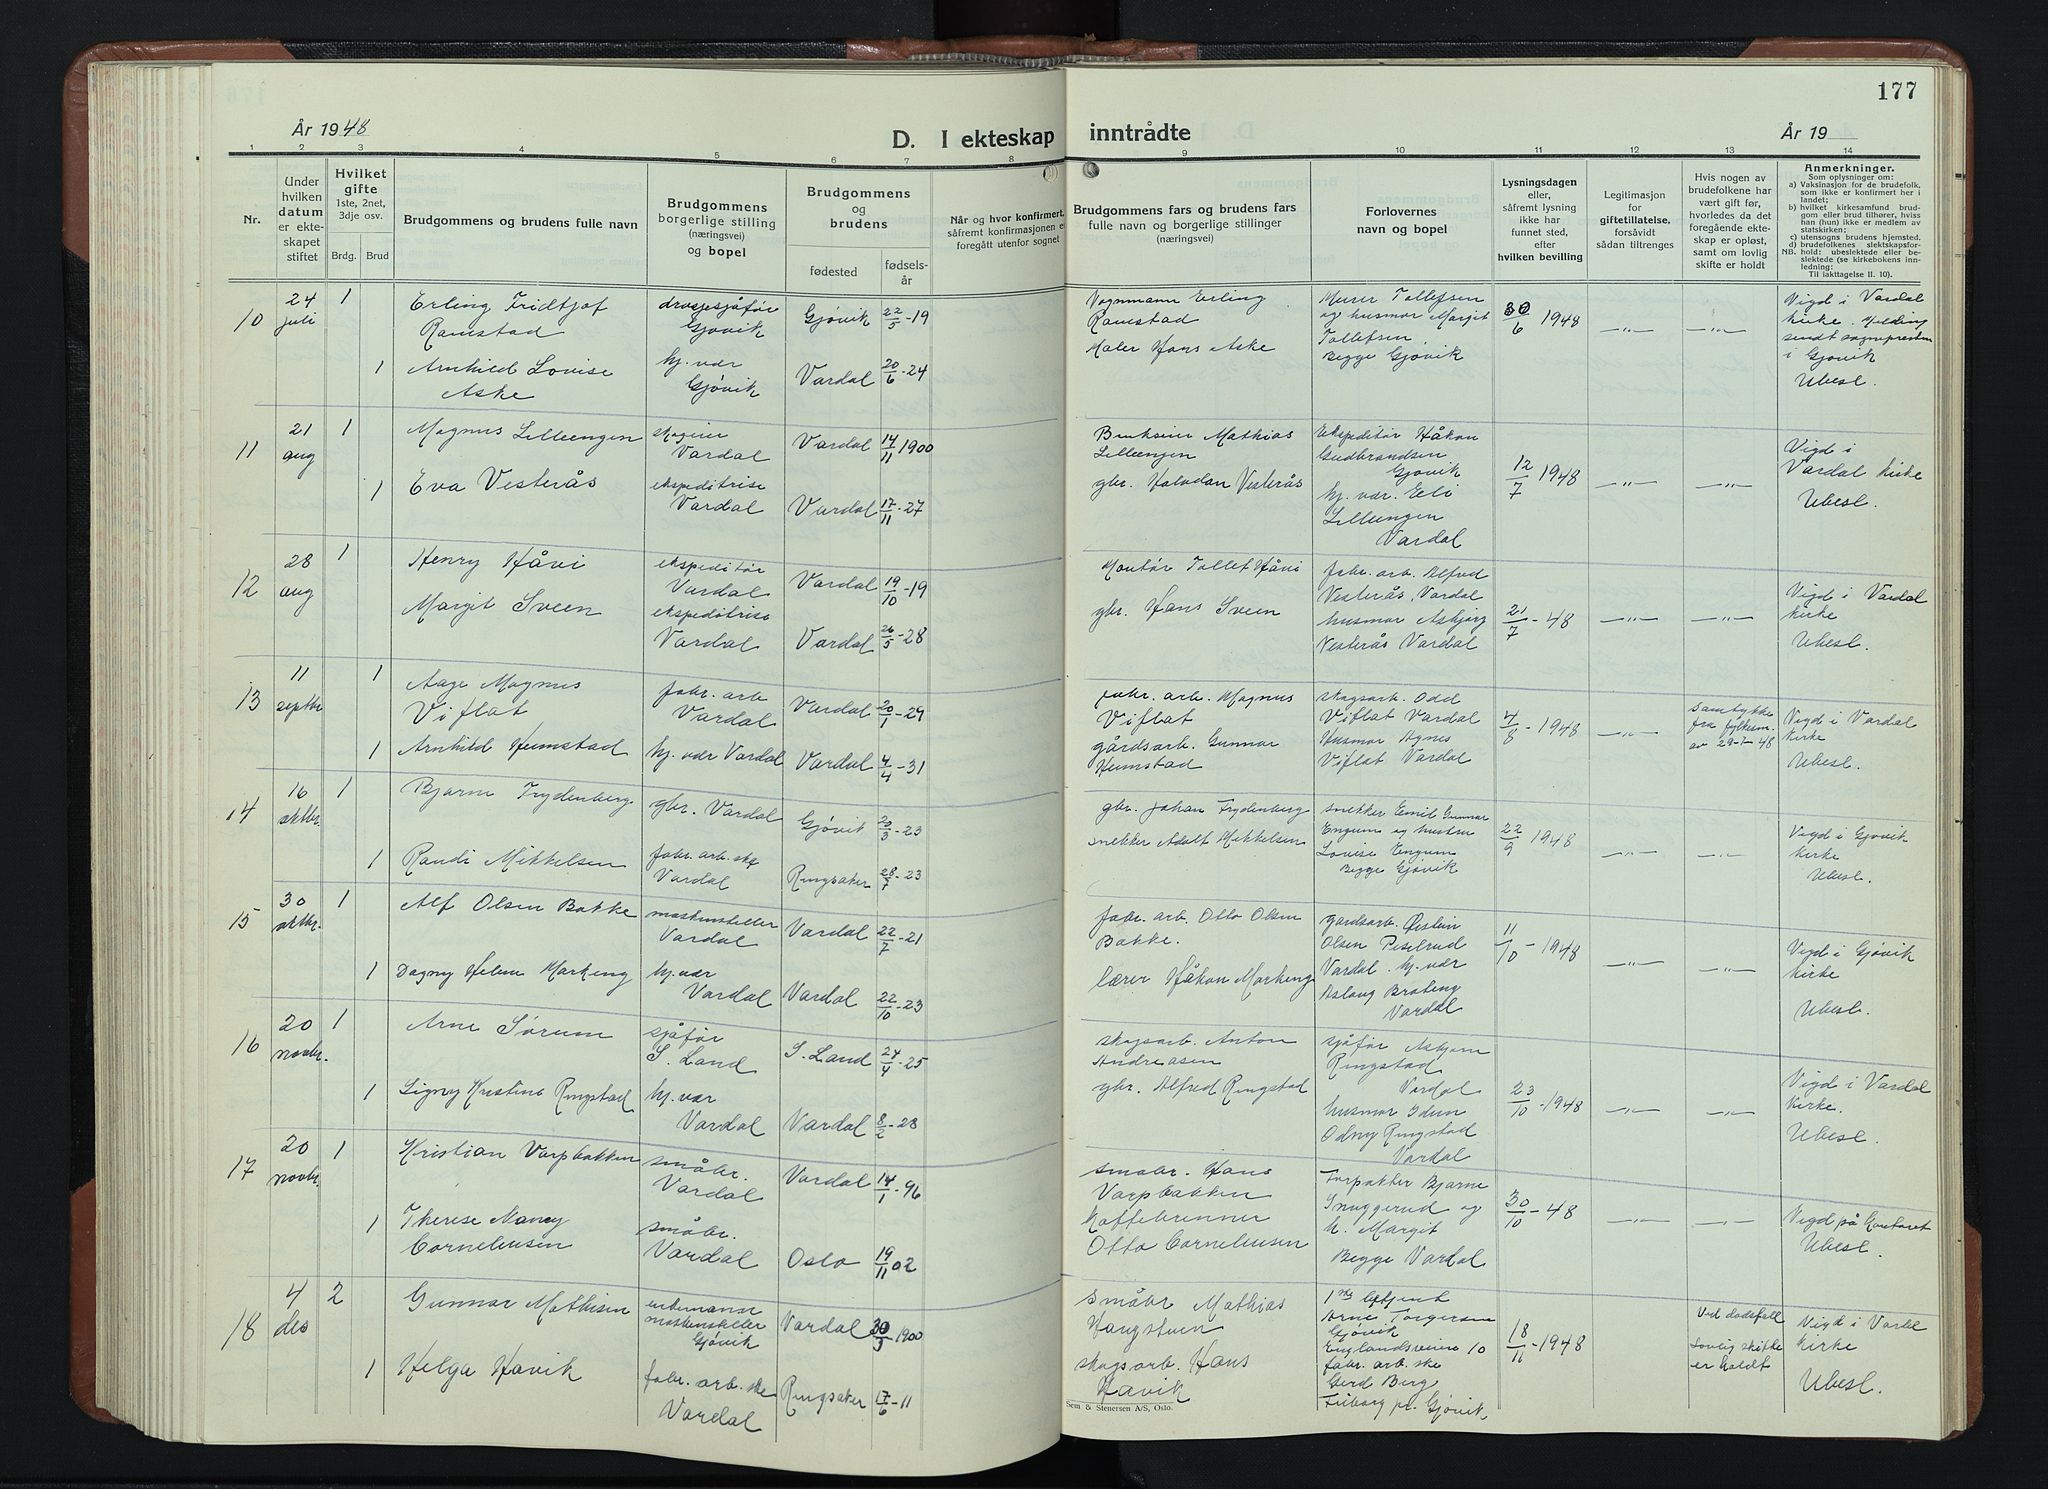 År 1948
D. I ekteskap inntrådte
År 19
177
1 2 3 4 5 6 7 8 9 10 11 12 13 14
Nr.
Under
hvilken
datum
er ekte-
skapet
stiftet
Hvilket
gifte
1ste, 2net,
3dje osv.
Brdg. Brud
Brudgommens og brudens fulle navn
Brudgommens
borgerlige stilling
(næringsvei)
og bopel
Brudgommens
og
brudens
fødested
fødsels-
år
Når og hvor konfirmert,
såfremt konfirmasjonen er
foregått utenfor sognet
Brudgommens fars og brudens fars
fulle navn og borgerlige stillinger
(næringsvei)
Forlovernes
navn og bopel
Lysningsdagen
eller,
såfremt lysning
ikke har
funnet sted,
efter
hvilken bevilling
Legitimasjon
for
giftetillatelse,
forsåvidt
sådan tiltrenges
Hvis nogen av
brudefolkene har
vært gift før,
hvorledes da det
foregående ekte-
skap er opløst,
samt om lovlig
skifte er holdt
Anmerkninger.
Som oplysninger om:
a) Vaksinasjon for de brudefolk,
som ikke er konfirmert her i
landet;
b) hvilket kirkesamfund brud-
gom eller brud tilhører, hviss
han (hun) ikke er medlem av
statskirken;
c) utensogns brudens hjemsted.
d) brudefolkenes slektskapsfor-
NB. hold: ubeslektede eller be-
slektede (se kirkebokens inn-
ledning:
Til iakttagelse II. 10).
10
24
juli
1
Erling Fridtjof
Ramstad
drosjesjåfør
Gjøvik
Gjøvik
22/5-19
Vognmann Erling
Ramstad
Maler Hans Aske
Murer Tollefsen
og husmor Margit
Tollefsen
Begge Gjøvik
30/6 1948
—"—
—"—
Vigd i Vardal
kirke. Melding
sendt sognepresten
i Gjøvik
Ubesl.
1
Arnhild Lovise
Aske
hj. vær
Gjøvik
Vardal
20/6-24
11
21
aug
1
Magnus Lilleengen
skogeier
Vardal
Vardal
14/11 1900
Brukseier Mathias
Lilleengen
gbr. Halvdan Vesterås
Ekspeditør Håkon
Gudbrandsen
Gjøvik
hj. vær. Eli
Lilleengen
Vardal
12/7 1948
—"—
—"—
Vigd i
Vardal kirke
Ubesl.
1
Eva Vesterås
ekspeditrise
Vardal
Vardal
17/11-27
12
28
aug
1
Henry Håvi
ekspeditør
Vardal
Vardal
19/10-19
Montør Tollef Håvi
gbr. Hans Sveen
fabr. arb. Alfred
Vesterås, Vardal
husmor Asbjørg
Vesterås Vardal
21/7-48
—"—
—"—
Vigd i Vardal
kirke
Ubesl.
Margit Sveen
ekspeditrise
Vardal
Vardal
26/5-28
13
11
septbr
1
Aage Magnus
Viflat
fabr. arb
Vardal
Vardal
20/1-29
fabr. arb. Magnus
Viflat
gårdsarb. Gunnar
Hemstad
skogsarb. Odd
Viflat Vardal
Husmor Agnes
Viflat Vardal
4/8-1948
—"—
samtykke
fra fylkesm.
av 29-7-48
Vigd i Vardal
kirke
Ubesl.
1
Arnhild Hemstad
hj. vær Vardal
Vardal
4/4-31
14
16
oktbr.
1
Bjarne Frydenberg
gbr. Vardal
Gjøvik
20/3-23
gbr. Johan Frydenberg
snekker Adolf Mikkelsen
snekker Emil Gunnar
Engum og hustru
Lovise Engum
Begge Gjøvik
22/9 1948
—"—
—"—
Vigd i Gjøvik
kirke
Ubesl.
1
Randi Mikkelsen
fabr. arb. ske
Vardal
Ringsaker
28/7-23
15
30
oktbr.
1
Alf Olsen Bakke
maskinsetter
Vardal
Vardal
22/7-21
fabr. arb. Otto Olsen
Bakke.
lærer Håkon Markeng
gardsarb. Øistein
Olsen
Vardal. hj. vær
Aslaug Brateng
Vardal
11/10-1948
—"—
—"—
Vigd i Gjøvik
kirke
Ubesl.
1
Dagny Helene Markeng
hj. vær
Vardal
Vardal
22/10-23
16
20
novbr.
1
Arne Sørum
sjåfør
S. Land
S. Land
24/4-25
skogsarb. Anton
Andreasen
gbr. Alfred Ringstad
sjåfør Asbjørn
Ringstad
Vardal
husmor Idun
Odny Ringstad
Vardal
23/10-1948
—"—
—"—
Vigd i Vardal
kirke.
Ubesl.
1
Signy Kristine Ringstad
hj. vær
Vardal
Vardal
8/2-28
17
20
novbr.
1
Kristian Varpbakken
småbr.
Vardal
Vardal
14/1-96
småbr. Hans
Varpbakken
Kaffebrenner
Otto Corneliussen
Forpakter Bjarne
Snuggerud og
h. Margit
Begge Vardal
30/10-48
—"—
—"—
Vigd på Kontoret
Ubesl.
1
Therese Nancy
Corneliussen
småbr.
Vardal
Oslo
19/11 02
18
4
des
2
Gunnar Mathisen
enkemann
maskinsetter
Gjøvik
Vardal
30/5-1900
småbr Mathias
Haugstuen
skogsarb. Hans
Havik
Arne Torgersen
Gjøvik
Englandsveien 10
fabr. arb. ske
Gerd Berg
pr. Gjøvik.
18/11-1948
—"—
Ved dødsfall
Lovlig skifte
er holdt
Vigd i Vardal
kirke
Ubesl.
1
Helga Havik
fabr. arb. ske
Vardal
Ringsaker
17/6-11
Sem & Stenersen A/S, Oslo.